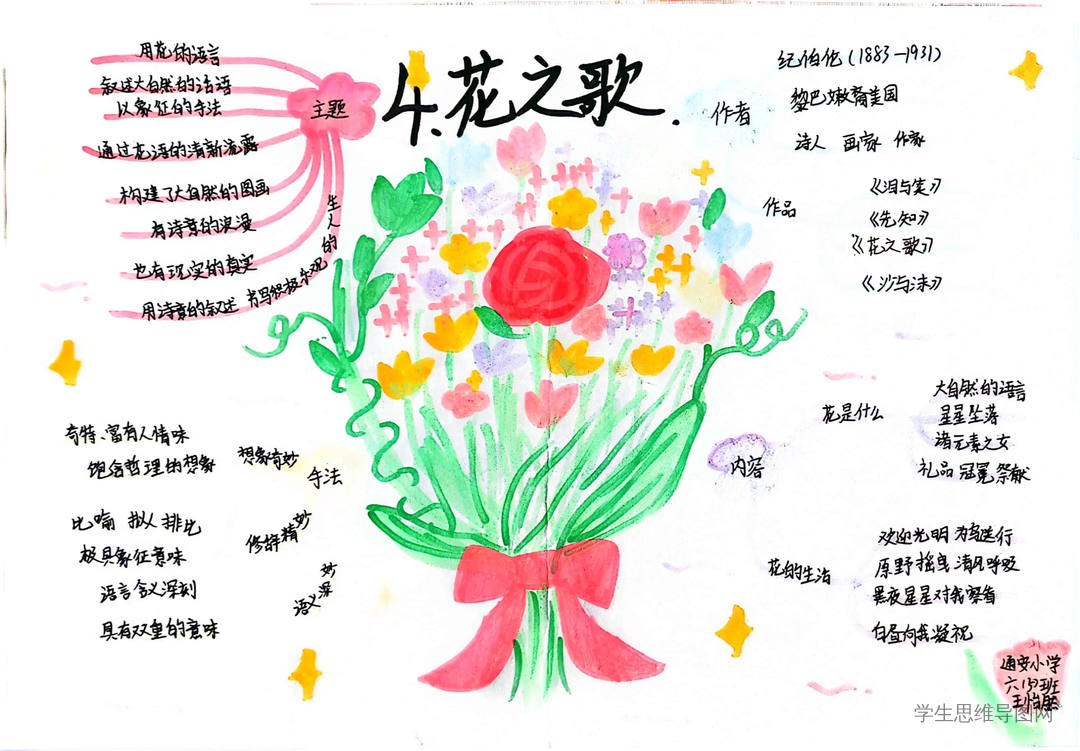 4.花之歌.
主题
用花的语言
叙述大自然的话语
以象征的手法
通过花语的清新流露
构建了大自然的图画
有诗意的浪漫
也有现实的真实
用诗意的叙述 书写积极乐观的人生
作者
纪伯伦(1883—1931)
黎巴嫩裔美国
诗人 画家 作家
作品
《泪与笑》
《先知》
《花之歌》
《沙与沫》
手法
想象奇妙
奇特、富有人情味
饱含哲理的想象
修辞精妙
比喻 拟人 排比
极具象征意味
语义深妙
语言含义深刻
具有双重的意味
内容
花是什么
大自然的语言
星星坠落
诸元素之女
礼品 冠冕 祭献
花的生活
欢迎光明 为鸟送行
原野摇曳 清风呼吸
黑夜星星对我察看
白昼向我凝视
通安小学
六(3)班
学生思维导图网